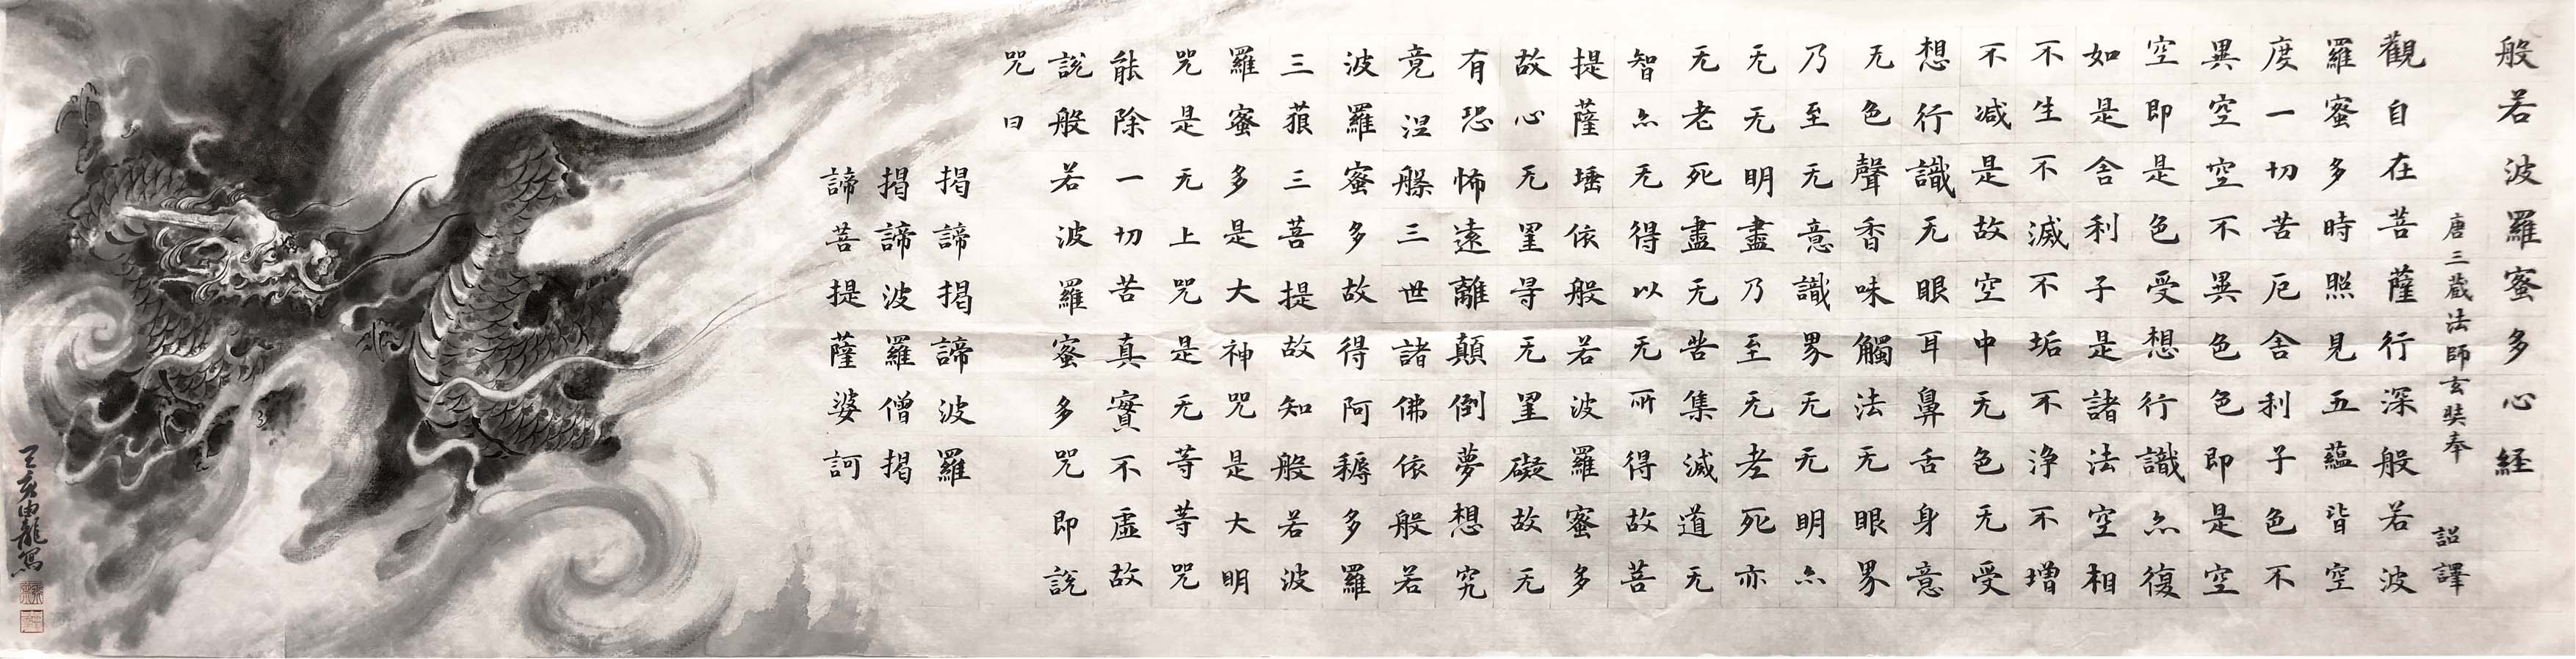 般若波羅蜜多心経
唐三蔵法師玄奘奉 詔譯
觀自在菩薩行深般若波
羅蜜多時照見五蘊皆空
度一切苦厄舎利子色不
異空空不異色色即是空
空即是色受想行識亦復
如是舎利子是諸法空相
不生不滅不垢不浄不增
不減是故空中无色无受
想行識无眼耳鼻舌身意
无色聲香味觸法无眼界
乃至无意識界无无明亦
无无明盡乃至无老死亦
无老死盡无苦集滅道无
智亦无得以无所得故菩
提薩埵依般若波羅蜜多
故心无罣㝵无罣礙故无
有恐怖遠離顛倒夢想究
竟涅槃三世諸佛依般若
波羅蜜多故得阿耨多羅
三藐三菩提故知般若波
羅蜜多是大神咒是大明
咒是无上咒是无等等咒
能除一切苦真實不虛故
説般若波羅蜜多咒即説
咒曰
揭諦揭諦波羅
揭諦波羅僧揭
諦菩提薩婆訶
亥由龍寫